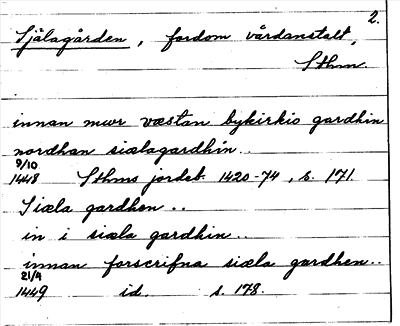 2.
Själagården, fordom vårdanstalt,
Sthm.
innan mwr væstan bykirkio gardhin
nordhan siælagardhin..
9/10
1448 Sthms jordeb. 1420-74, s. 171.
Siæla gardhen..
in i siæla gardhin..
innan forscrifna siæla gardhen..
21/4
1449 id. s. 178.